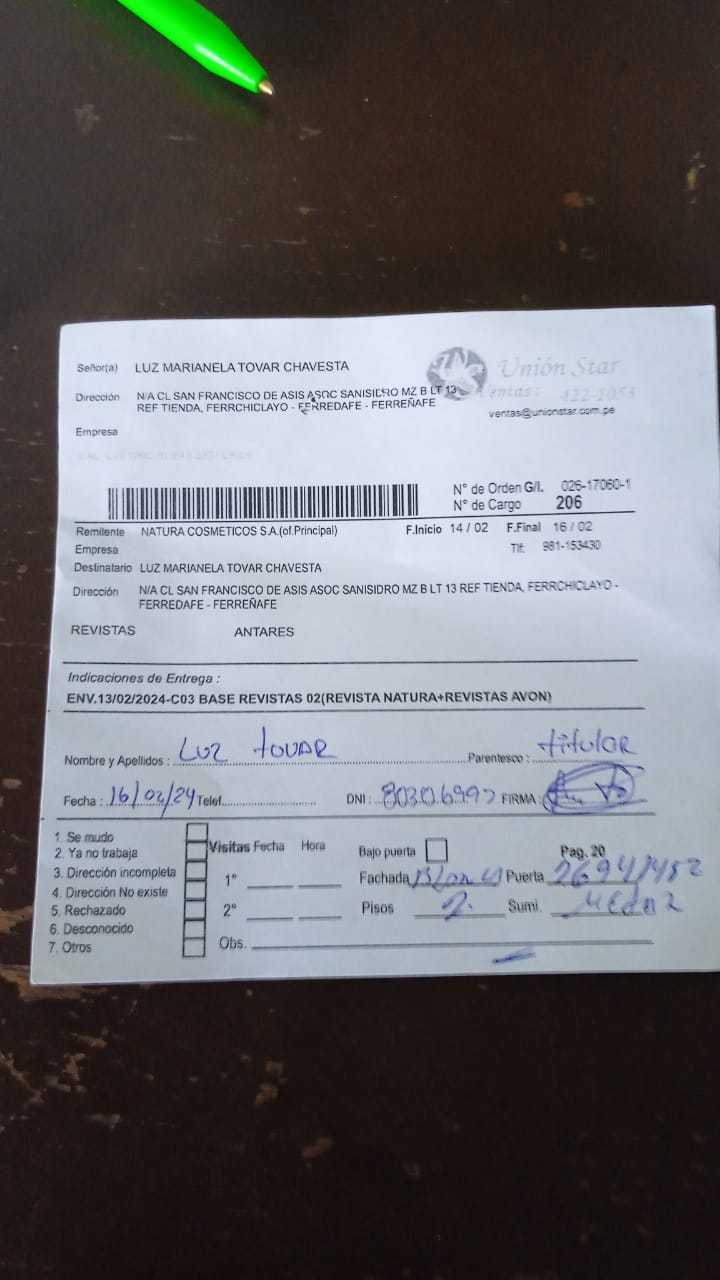 Señor(a) LUZ MARIANELA TOVAR CHAVESTA
Unión Star
Dirección N/A CL SAN FRANCISCO DE ASIS ASOC SANISIDRO MZ B LT 13
Ventas: 422-2053
REF TIENDA, FERRCHICLAYO - FERREDAFE - FERREÑAFE
ventas@unionstar.com.pe
Empresa
N° de Orden G/I. 026-17060-1
N° de Cargo 206
Remitente NATURA COSMETICOS S.A.(of.Principal) F.Inicio 14 / 02 F.Final 16 / 02
Empresa Tlf: 981-153430
Destinatario LUZ MARIANELA TOVAR CHAVESTA
Dirección N/A CL SAN FRANCISCO DE ASIS ASOC SANISIDRO MZ B LT 13 REF TIENDA, FERRCHICLAYO -
FERREDAFE - FERREÑAFE
REVISTAS ANTARES
Indicaciones de Entrega :
ENV.13/02/2024-C03 BASE REVISTAS 02(REVISTA NATURA+REVISTAS AVON)
Nombre y Apellidos : Luz TOVAR Parentesco : titular
Fecha : 16/02/24 Telef. DNI : 80306997 FIRMA :
1. Se mudo
2. Ya no trabaja
3. Dirección incompleta
4. Dirección No existe
5. Rechazado
6. Desconocido
7. Otros
Visitas Fecha Hora
1°
2°
Obs.
Bajo puerta Pag. 20
Fachada Puerta
Pisos 2. Sumi.